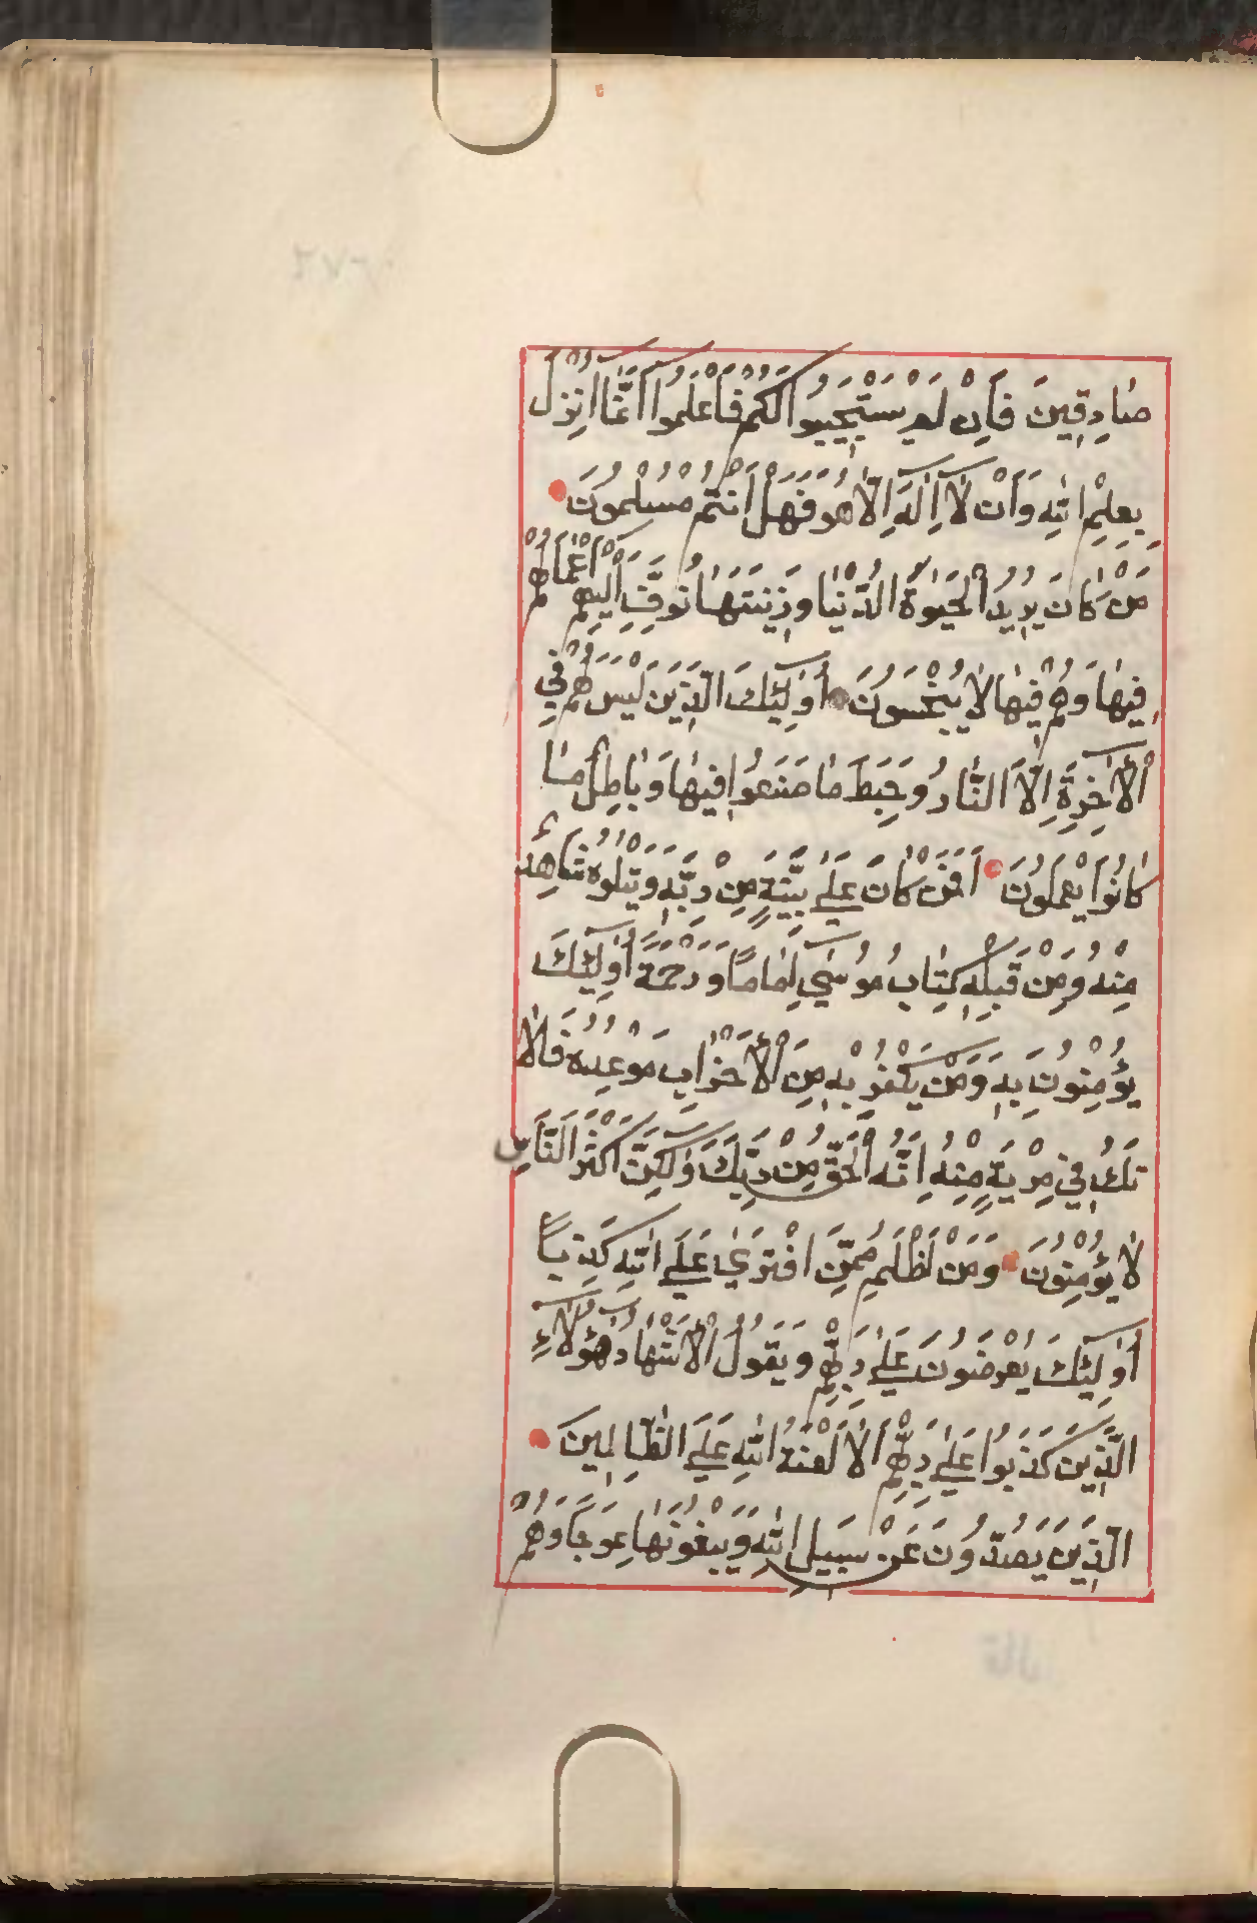 صَادِقِينَ فَاِنْ لَمْ يَسْتَجِيبُوا لَكُمْ فَاعْلَمُوا اَنَّمَا اُنْزِلَ
بِعِلْمِ اللّٰهِ وَاَنْ لَا اِلٰهَ اِلَّا هُوَ فَهَلْ اَنْتُمْ مُسْلِمُونَ
مَنْ كَانَ يُرِيدُ الْحَيٰوةَ الدُّنْيَا وَزِينَتَهَا نُوَفِّ اِلَيْهِمْ اَعْمَالَهُمْ
فِيهَا وَهُمْ فِيهَا لَا يُبْخَسُونَ اُولٰئِكَ الَّذِينَ لَيْسَ لَهُمْ فِي
الْاٰخِرَةِ اِلَّا النَّارُ وَحَبِطَ مَا صَنَعُوا فِيهَا وَبَاطِلٌ مَا
كَانُوا يَعْمَلُونَ اَفَمَنْ كَانَ عَلٰى بَيِّنَةٍ مِنْ رَبِّهِ وَيَتْلُوهُ شَاهِدٌ
مِنْهُ وَمِنْ قَبْلِهِ كِتَابُ مُوسٰى اِمَامًا وَرَحْمَةً اُولٰئِكَ
يُؤْمِنُونَ بِهِ وَمَنْ يَكْفُرْ بِهِ مِنَ الْاَحْزَابِ مَوْعِدُهُ فَلَا
تَكُ فِي مِرْيَةٍ مِنْهُ اِنَّهُ الْحَقُّ مِنْ رَبِّكَ وَلٰكِنَّ اَكْثَرَ النَّاسِ
لَا يُؤْمِنُونَ وَمَنْ اَظْلَمُ مِمَّنِ افْتَرٰى عَلَى اللّٰهِ كَذِبًا
اُولٰئِكَ يُعْرَضُونَ عَلٰى رَبِّهِمْ وَيَقُولُ الْاَشْهَادُ هٰؤُلَاءِ
الَّذِينَ كَذَبُوا عَلٰى رَبِّهِمْ اَلَا لَعْنَةُ اللّٰهِ عَلَى الظَّالِمِينَ
الَّذِينَ يَصُدُّونَ عَنْ سَبِيلِ اللّٰهِ وَيَبْغُونَهَا عِوَجًا وَهُمْ